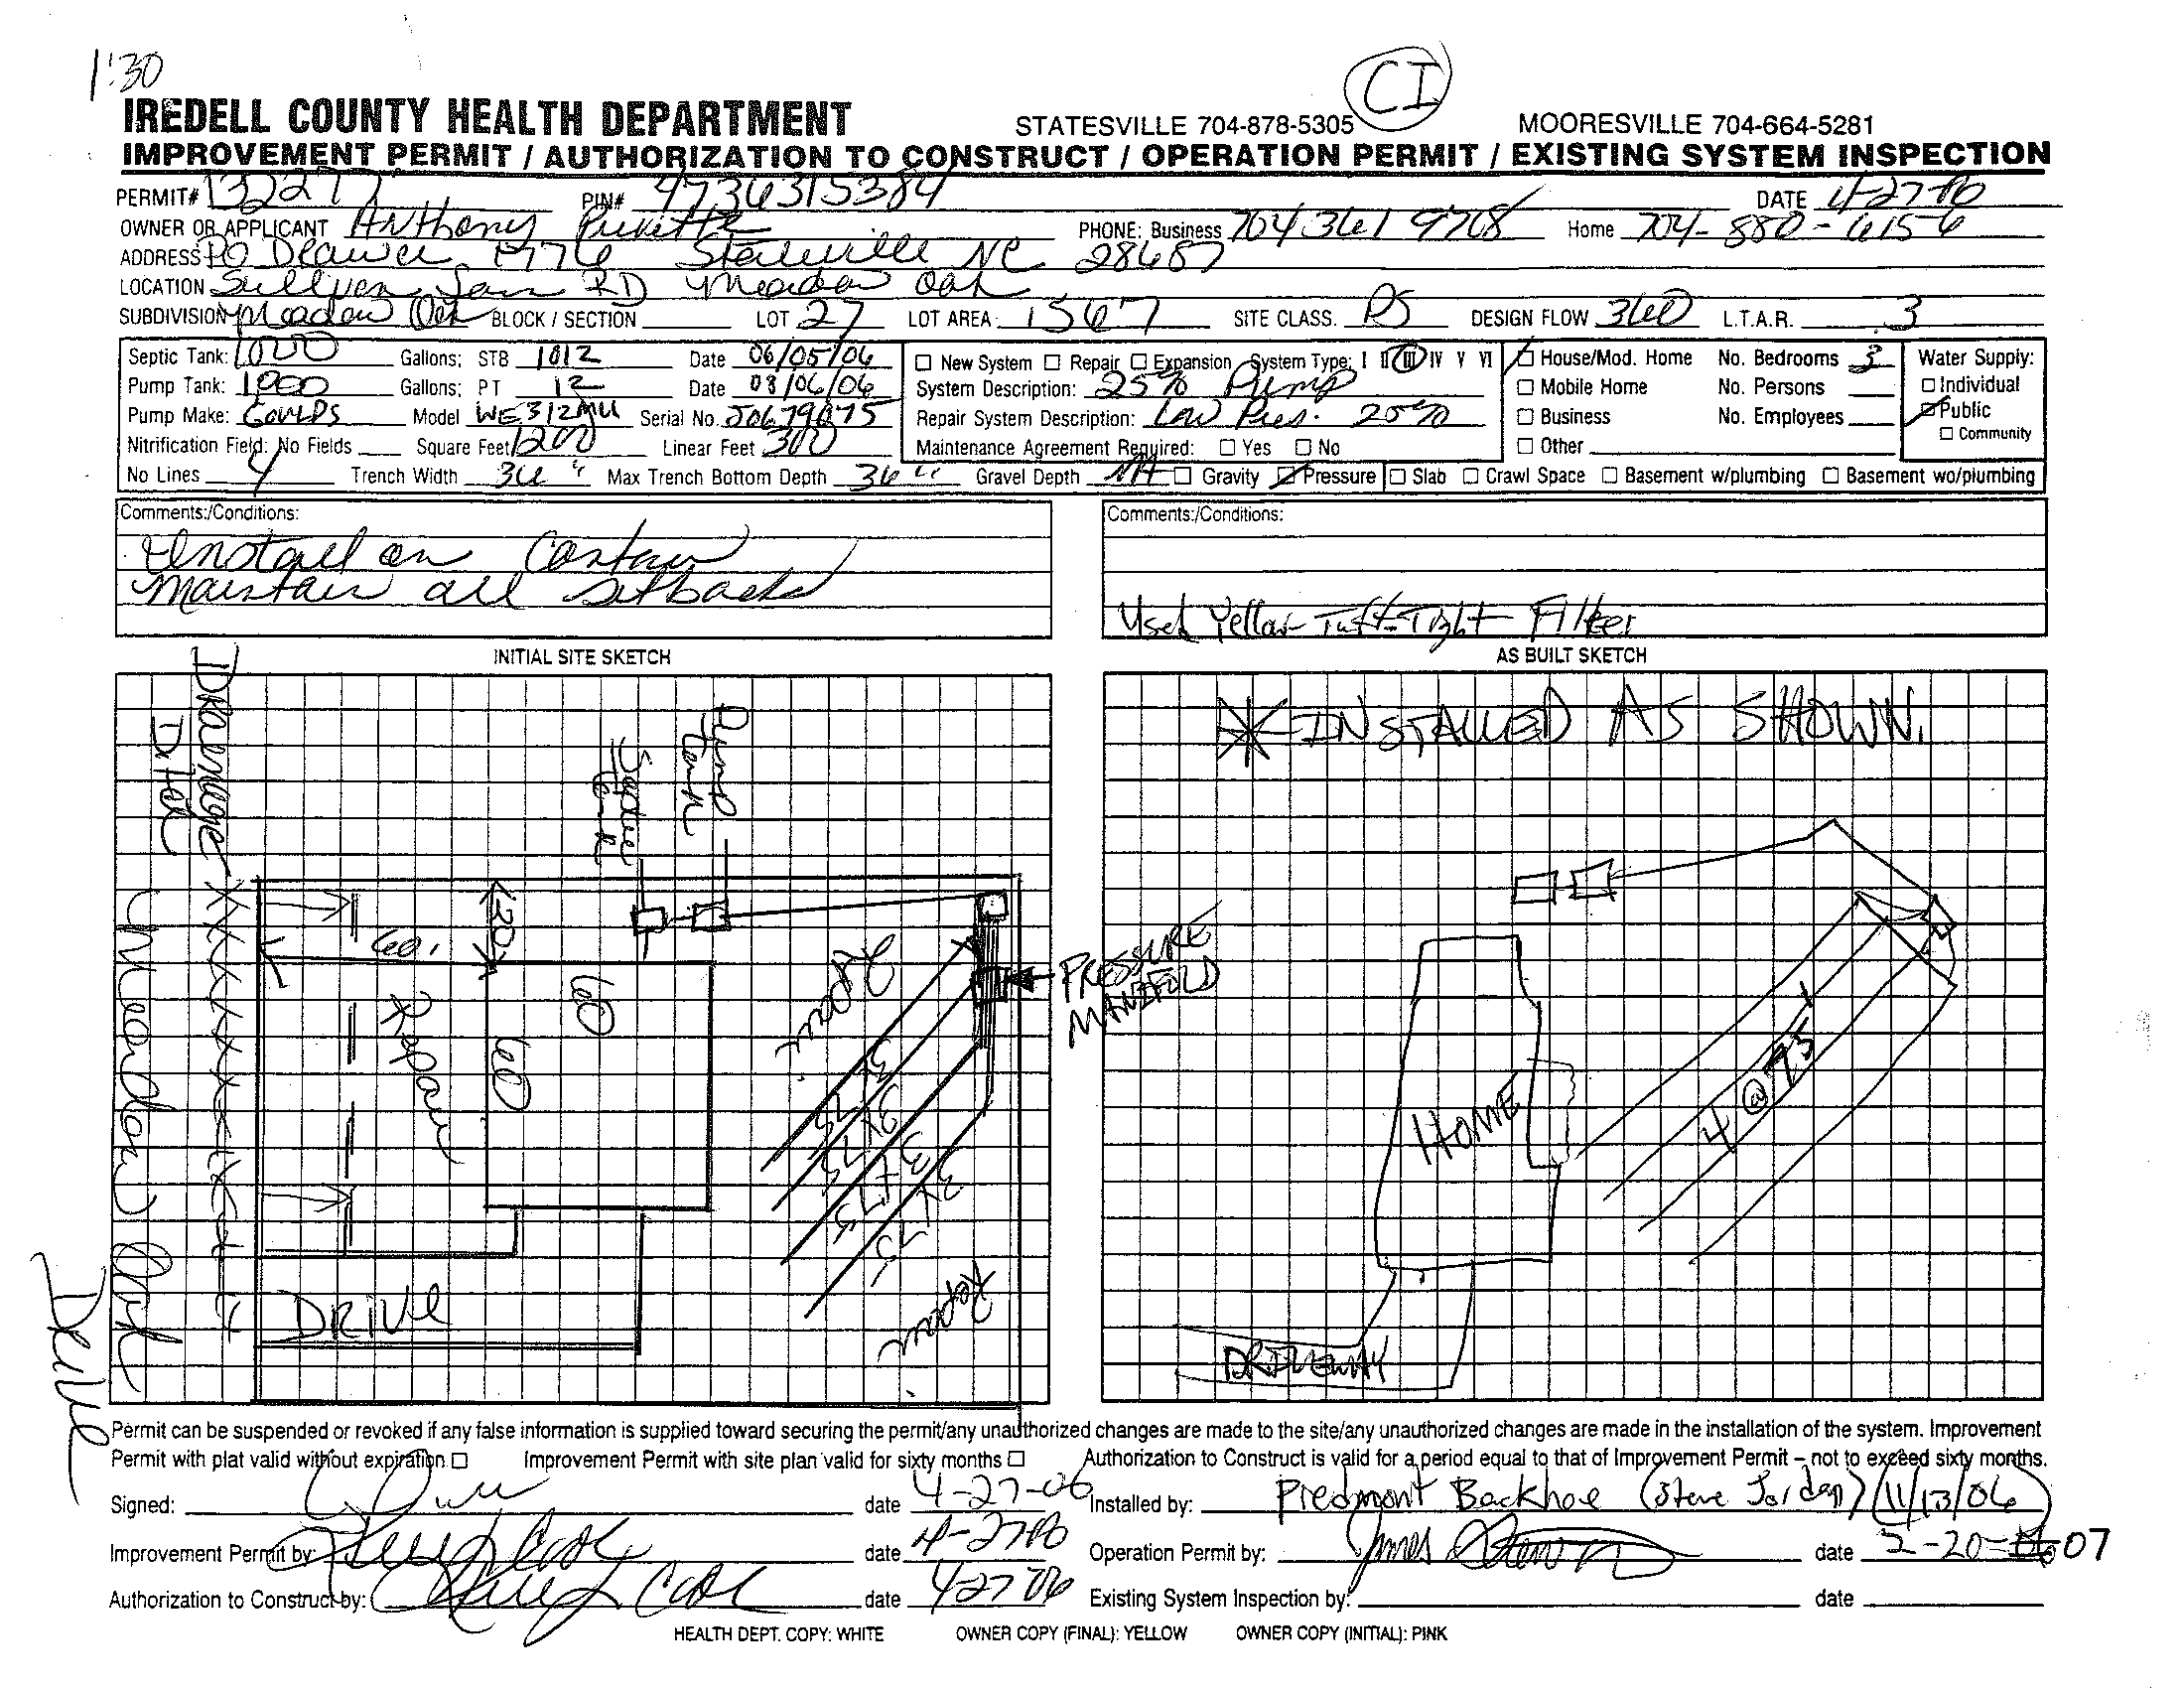 1:30
CI
IREDELL COUNTY HEALTH DEPARTMENT STATESVILLE 704-878-5305 MOORESVILLE 704-664-5281
IMPROVEMENT PERMIT / AUTHORIZATION TO CONSTRUCT / OPERATION PERMIT / EXISTING SYSTEM INSPECTION
PERMIT# 132277 PIN# 4736315384 DATE 4-27-06
OWNER OR APPLICANT Anthony PHONE: Business 704 361 9708 Home 704-880-6156
ADDRESS PO Drawer 1776 Statesville NC 28687
LOCATION RD Meadow Oak
SUBDIVISION Meadow Oak BLOCK / SECTION LOT 27 LOT AREA 1567 SITE CLASS. PS DESIGN FLOW 360 L.T.A.R. .3
Septic Tank: 1000 Gallons; STB 1012 Date 06/05/06 ☐ New System ☐ Repair ☐ Expansion System Type: I II III IV V VI ☐ House/Mod. Home No. Bedrooms 3 Water Supply:
Pump Tank: 1000 Gallons; PT 12 Date 03/06/06 System Description: 25% Pump ☐ Mobile Home No. Persons ☐ Individual
Pump Make: GOULDS Model WE312MU Serial No. J0679075 Repair System Description: Low Pres. 25% ☐ Business No. Employees ☐ Public
Nitrification Field: No Fields Square Feet 1200 Linear Feet 300 Maintenance Agreement Required: ☐ Yes ☐ No ☐ Other ☐ Community
No Lines 4 Trench Width 36" Max Trench Bottom Depth 36" Gravel Depth NA ☐ Gravity ☐ Pressure ☐ Slab ☐ Crawl Space ☐ Basement w/plumbing ☐ Basement wo/plumbing
Comments:/Conditions: Comments:/Conditions:
Install on Contour
Maintain all setbacks
Used Yellow Tuf-Tight Filter
INITIAL SITE SKETCH AS BUILT SKETCH
Drainage
Ditch
Septic
Tank
Pump
Tank
* INSTALLED AS SHOWN.
60'
20'
60
60
Repair
Repair
PRESSURE
MANIFOLD
3x75
3x75
3x75
3x75
Repair
DRIVE
Meadow Oak
Drive
HOME
4 @ 75'
DRIVEWAY
Permit can be suspended or revoked if any false information is supplied toward securing the permit/any unauthorized changes are made to the site/any unauthorized changes are made in the installation of the system. Improvement
Permit with plat valid without expiration ☐ Improvement Permit with site plan valid for sixty months ☐ Authorization to Construct is valid for a period equal to that of Improvement Permit – not to exceed sixty months.
Signed: date 4-27-06 Installed by: Piedmont Backhoe (Steve Jordan) (11/13/06)
Improvement Permit by: date 4-27-06 Operation Permit by: James date 2-20-07
Authorization to Construct by: date 4-27-06 Existing System Inspection by: date
HEALTH DEPT. COPY: WHITE OWNER COPY (FINAL): YELLOW OWNER COPY (INITIAL): PINK